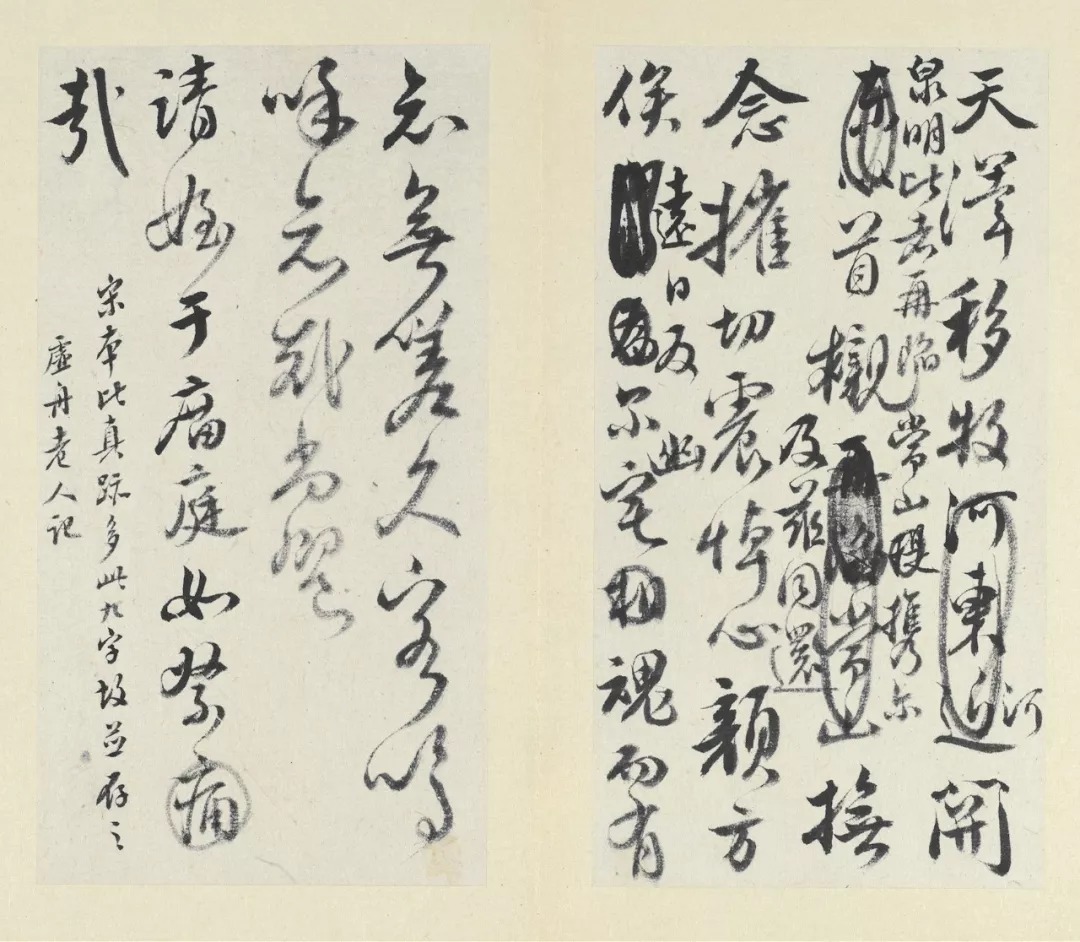 天澤移牧河東近開
河
泉明比者再陷常山提攜爾
首櫬常山撫
及茲同還
念摧切震悼心顏方
俟爾宅相魂而有
遠日
幽
知無嗟久客嗚
呼哀哉尚饗
請姪于痛庭如祭痛
哉
宋本比真跡多此九字故並存之
虛舟老人記